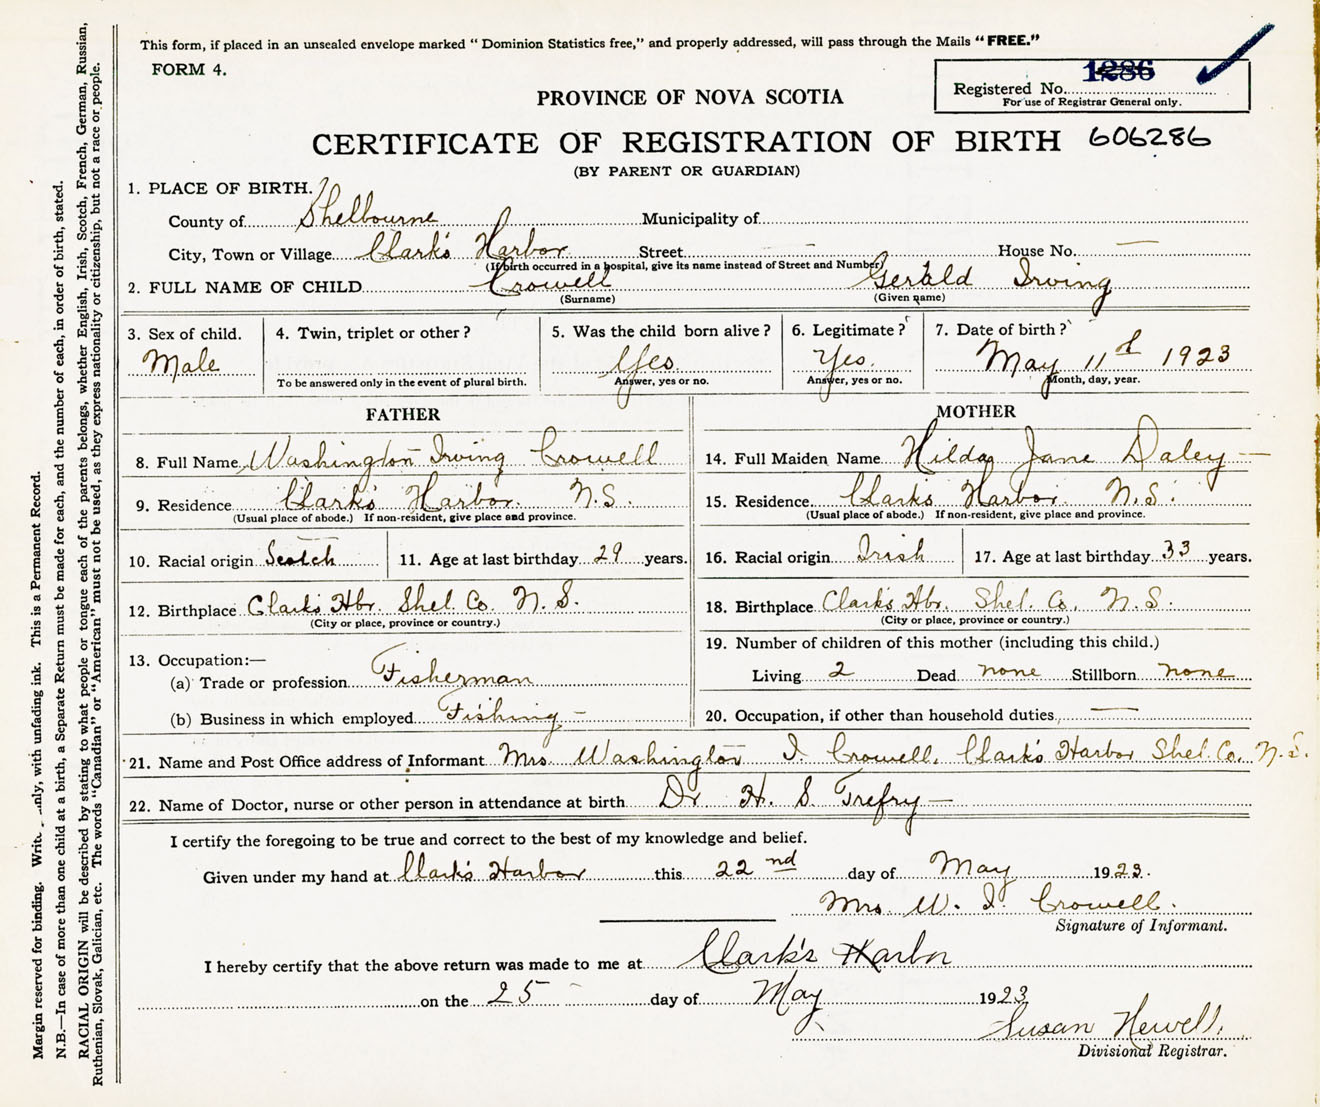 This form, if placed in an unsealed envelope marked " Dominion Statistics free," and properly addressed, will pass through the Mails "FREE."
FORM 4.
Registered No. 1286
For use of Registrar General only.
PROVINCE OF NOVA SCOTIA
CERTIFICATE OF REGISTRATION OF BIRTH 606286
(BY PARENT OR GUARDIAN)
1. PLACE OF BIRTH.
County of Shelbourne Municipality of
City, Town or Village Clark's Harbor Street — House No. —
(If birth occurred in a hospital, give its name instead of Street and Number)
2. FULL NAME OF CHILD Crowell Gerald Irving
(Surname) (Given name)
3. Sex of child. 4. Twin, triplet or other? 5. Was the child born alive? 6. Legitimate? 7. Date of birth?
Male Yes Yes. May 11th 1923
To be answered only in the event of plural birth. Answer, yes or no. Answer, yes or no. Month, day, year.
FATHER MOTHER
8. Full Name Washington Irving Crowell 14. Full Maiden Name Hilda Jane Daley —
9. Residence Clark's Harbor N.S. 15. Residence Clark's Harbor N.S.
(Usual place of abode.) If non-resident, give place and province. (Usual place of abode.) If non-resident, give place and province.
10. Racial origin Scotch 11. Age at last birthday 29 years. 16. Racial origin Irish 17. Age at last birthday 33 years.
12. Birthplace Clark's Hbr. Shel. Co. N.S. 18. Birthplace Clark's Hbr. Shel. Co. N.S.
(City or place, province or country.) (City or place, province or country.)
13. Occupation:— 19. Number of children of this mother (including this child.)
(a) Trade or profession Fisherman Living 2 Dead none Stillborn none
(b) Business in which employed Fishing — 20. Occupation, if other than household duties, —
21. Name and Post Office address of Informant Mrs Washington I. Crowell, Clark's Harbor Shel. Co. N.S.
22. Name of Doctor, nurse or other person in attendance at birth Dr H. S. Trefry —
I certify the foregoing to be true and correct to the best of my knowledge and belief.
Given under my hand at Clark's Harbor this 22nd day of May 1923.
Mrs W. I. Crowell.
Signature of Informant.
I hereby certify that the above return was made to me at Clark's Harbor
on the 25 day of May 1923
Susan Newell.
Divisional Registrar.
Margin reserved for binding. Write only, with unfading ink. This is a Permanent Record.
N.B.—In case of more than one child at a birth, a Separate Return must be made for each, and the number of each, in order of birth, stated.
RACIAL ORIGIN will be described by stating to what people or tongue each of the parents belongs, whether English, Irish, Scotch, French, German, Russian,
Ruthenian, Slovak, Galician, etc. The words "Canadian" or "American" must not be used, as they express nationality or citizenship, but not a race or people.